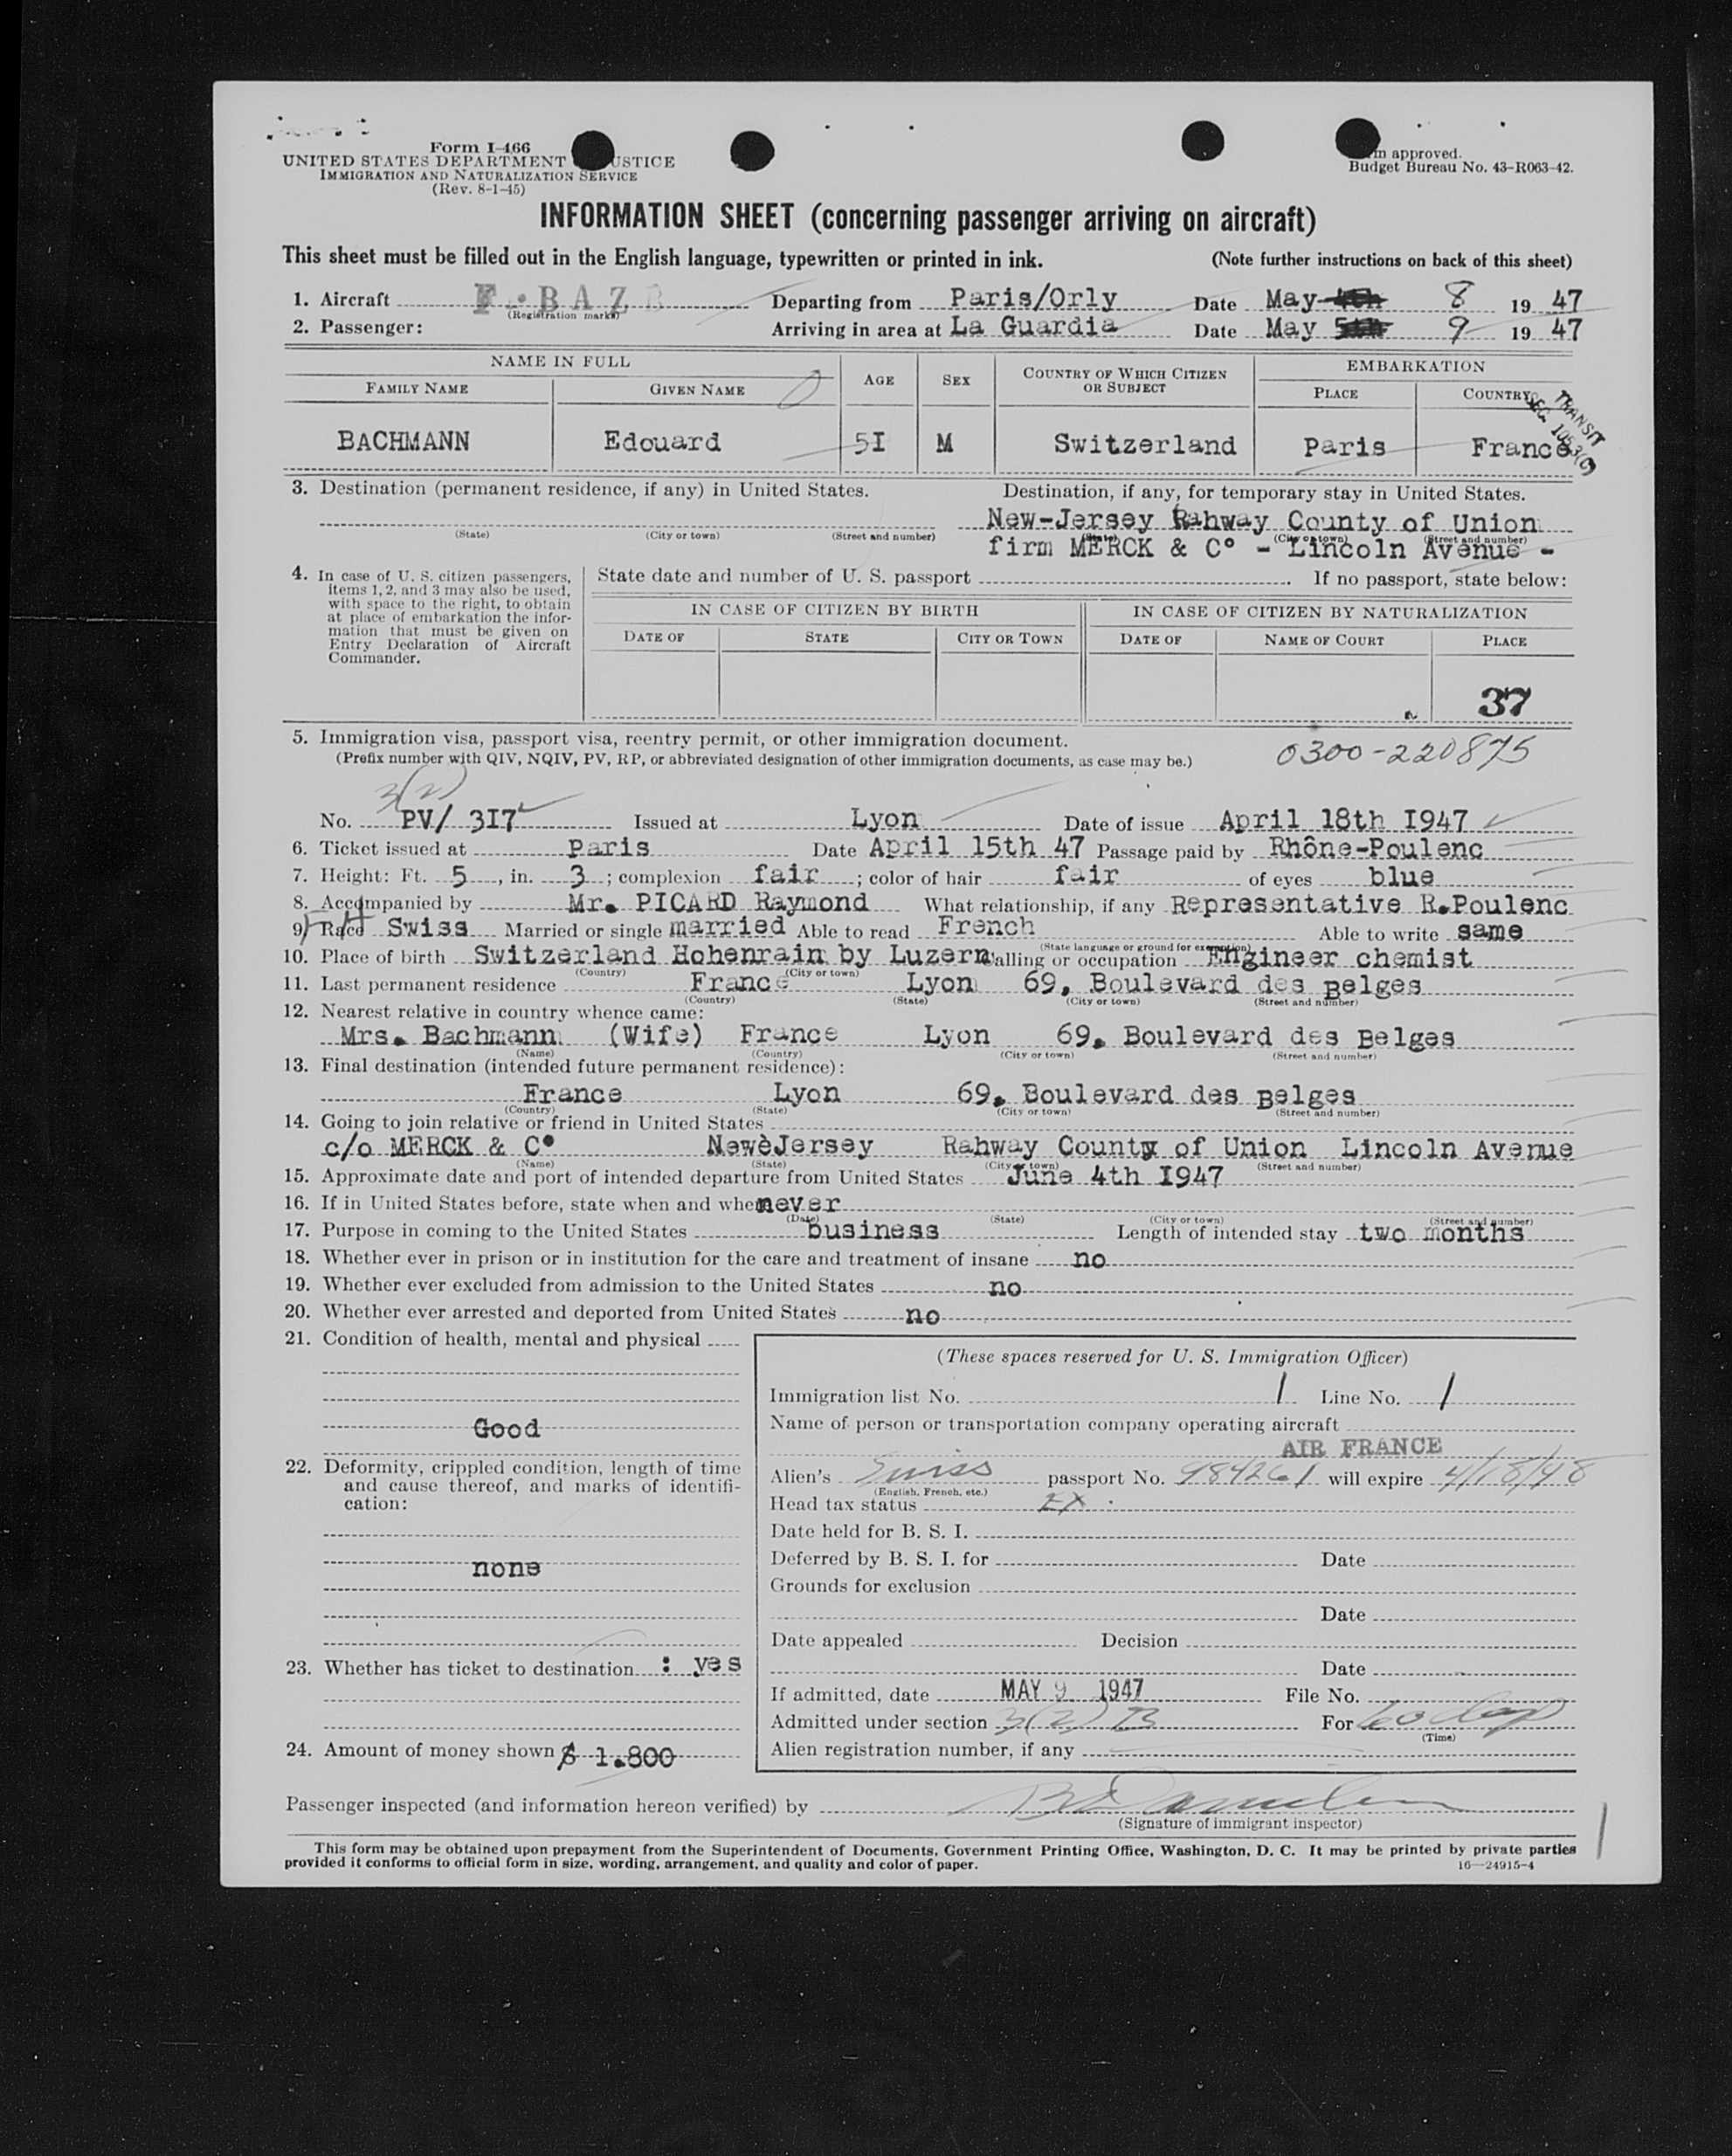 Form I-466
UNITED STATES DEPARTMENT USTICE
IMMIGRATION AND NATURALIZATION SERVICE
(Rev. 8-1-45)
m approved.
Budget Bureau No. 43-R063-42.
INFORMATION SHEET (concerning passenger arriving on aircraft)
This sheet must be filled out in the English language, typewritten or printed in ink. (Note further instructions on back of this sheet)
1. Aircraft F-BAZ Departing from Paris/Orly Date May 8 19 47
(Registration marks)
2. Passenger: Arriving in area at La Guardia Date May 5th 9 19 47
NAME IN FULL AGE SEX COUNTRY OF WHICH CITIZEN OR SUBJECT EMBARKATION
FAMILY NAME GIVEN NAME PLACE COUNTRY
TRANSIT
BACHMANN Edouard 5I M Switzerland Paris France
3. Destination (permanent residence, if any) in United States. Destination, if any, for temporary stay in United States.
New-Jersey Rahway County of Union
(State) (City or town) (Street and number) (State) (City or town) (Street and number)
firm MERCK & C° - Lincoln Avenue -
4. In case of U. S. citizen passengers, items 1, 2, and 3 may also be used, with space to the right, to obtain at place of embarkation the information that must be given on Entry Declaration of Aircraft Commander.
State date and number of U. S. passport If no passport, state below:
IN CASE OF CITIZEN BY BIRTH IN CASE OF CITIZEN BY NATURALIZATION
DATE OF STATE CITY OR TOWN DATE OF NAME OF COURT PLACE
37
5. Immigration visa, passport visa, reentry permit, or other immigration document.
(Prefix number with QIV, NQIV, PV, RP, or abbreviated designation of other immigration documents, as case may be.)
0300-220875
3(2)
No. PV/ 3I7 Issued at Lyon Date of issue April 18th I947
6. Ticket issued at Paris Date April 15th 47 Passage paid by Rhône-Poulenc
7. Height: Ft. 5, in. 3; complexion fair; color of hair fair of eyes blue
8. Accompanied by Mr. PICARD Raymond What relationship, if any Representative R.Poulenc
9. Race Swiss Married or single married Able to read French Able to write same
(State language or ground for exemption)
10. Place of birth Switzerland Hohenrain by Luzern Calling or occupation Engineer chemist
(Country) (City or town)
11. Last permanent residence France Lyon 69, Boulevard des Belges
(Country) (State) (City or town) (Street and number)
12. Nearest relative in country whence came:
Mrs. Bachmann (Wife) France Lyon 69, Boulevard des Belges
(Name) (Country) (City or town) (Street and number)
13. Final destination (intended future permanent residence):
France Lyon 69, Boulevard des Belges
(Country) (State) (City or town) (Street and number)
14. Going to join relative or friend in United States
c/o MERCK & C° NewèJersey Rahway County of Union Lincoln Avenue
(Name) (State) (City or town) (Street and number)
15. Approximate date and port of intended departure from United States June 4th I947
16. If in United States before, state when and where never
(Date) (State) (City or town) (Street and number)
17. Purpose in coming to the United States business Length of intended stay two months
18. Whether ever in prison or in institution for the care and treatment of insane no
19. Whether ever excluded from admission to the United States no
20. Whether ever arrested and deported from United States no
21. Condition of health, mental and physical
Good
22. Deformity, crippled condition, length of time and cause thereof, and marks of identification:
none
23. Whether has ticket to destination : yes
24. Amount of money shown $ 1.800
(These spaces reserved for U. S. Immigration Officer)
Immigration list No. 1 Line No. 1
Name of person or transportation company operating aircraft
AIR FRANCE
Alien's Swiss passport No. 984261 will expire 4/18/48
(English, French, etc.)
Head tax status EX
Date held for B. S. I.
Deferred by B. S. I. for Date
Grounds for exclusion
Date
Date appealed Decision
Date
If admitted, date MAY 9 1947 File No.
Admitted under section 3(2) B For 60 days
(Time)
Alien registration number, if any
Passenger inspected (and information hereon verified) by
(Signature of immigrant inspector)
This form may be obtained upon prepayment from the Superintendent of Documents, Government Printing Office, Washington, D. C. It may be printed by private parties
provided it conforms to official form in size, wording, arrangement, and quality and color of paper.
16—24915-4